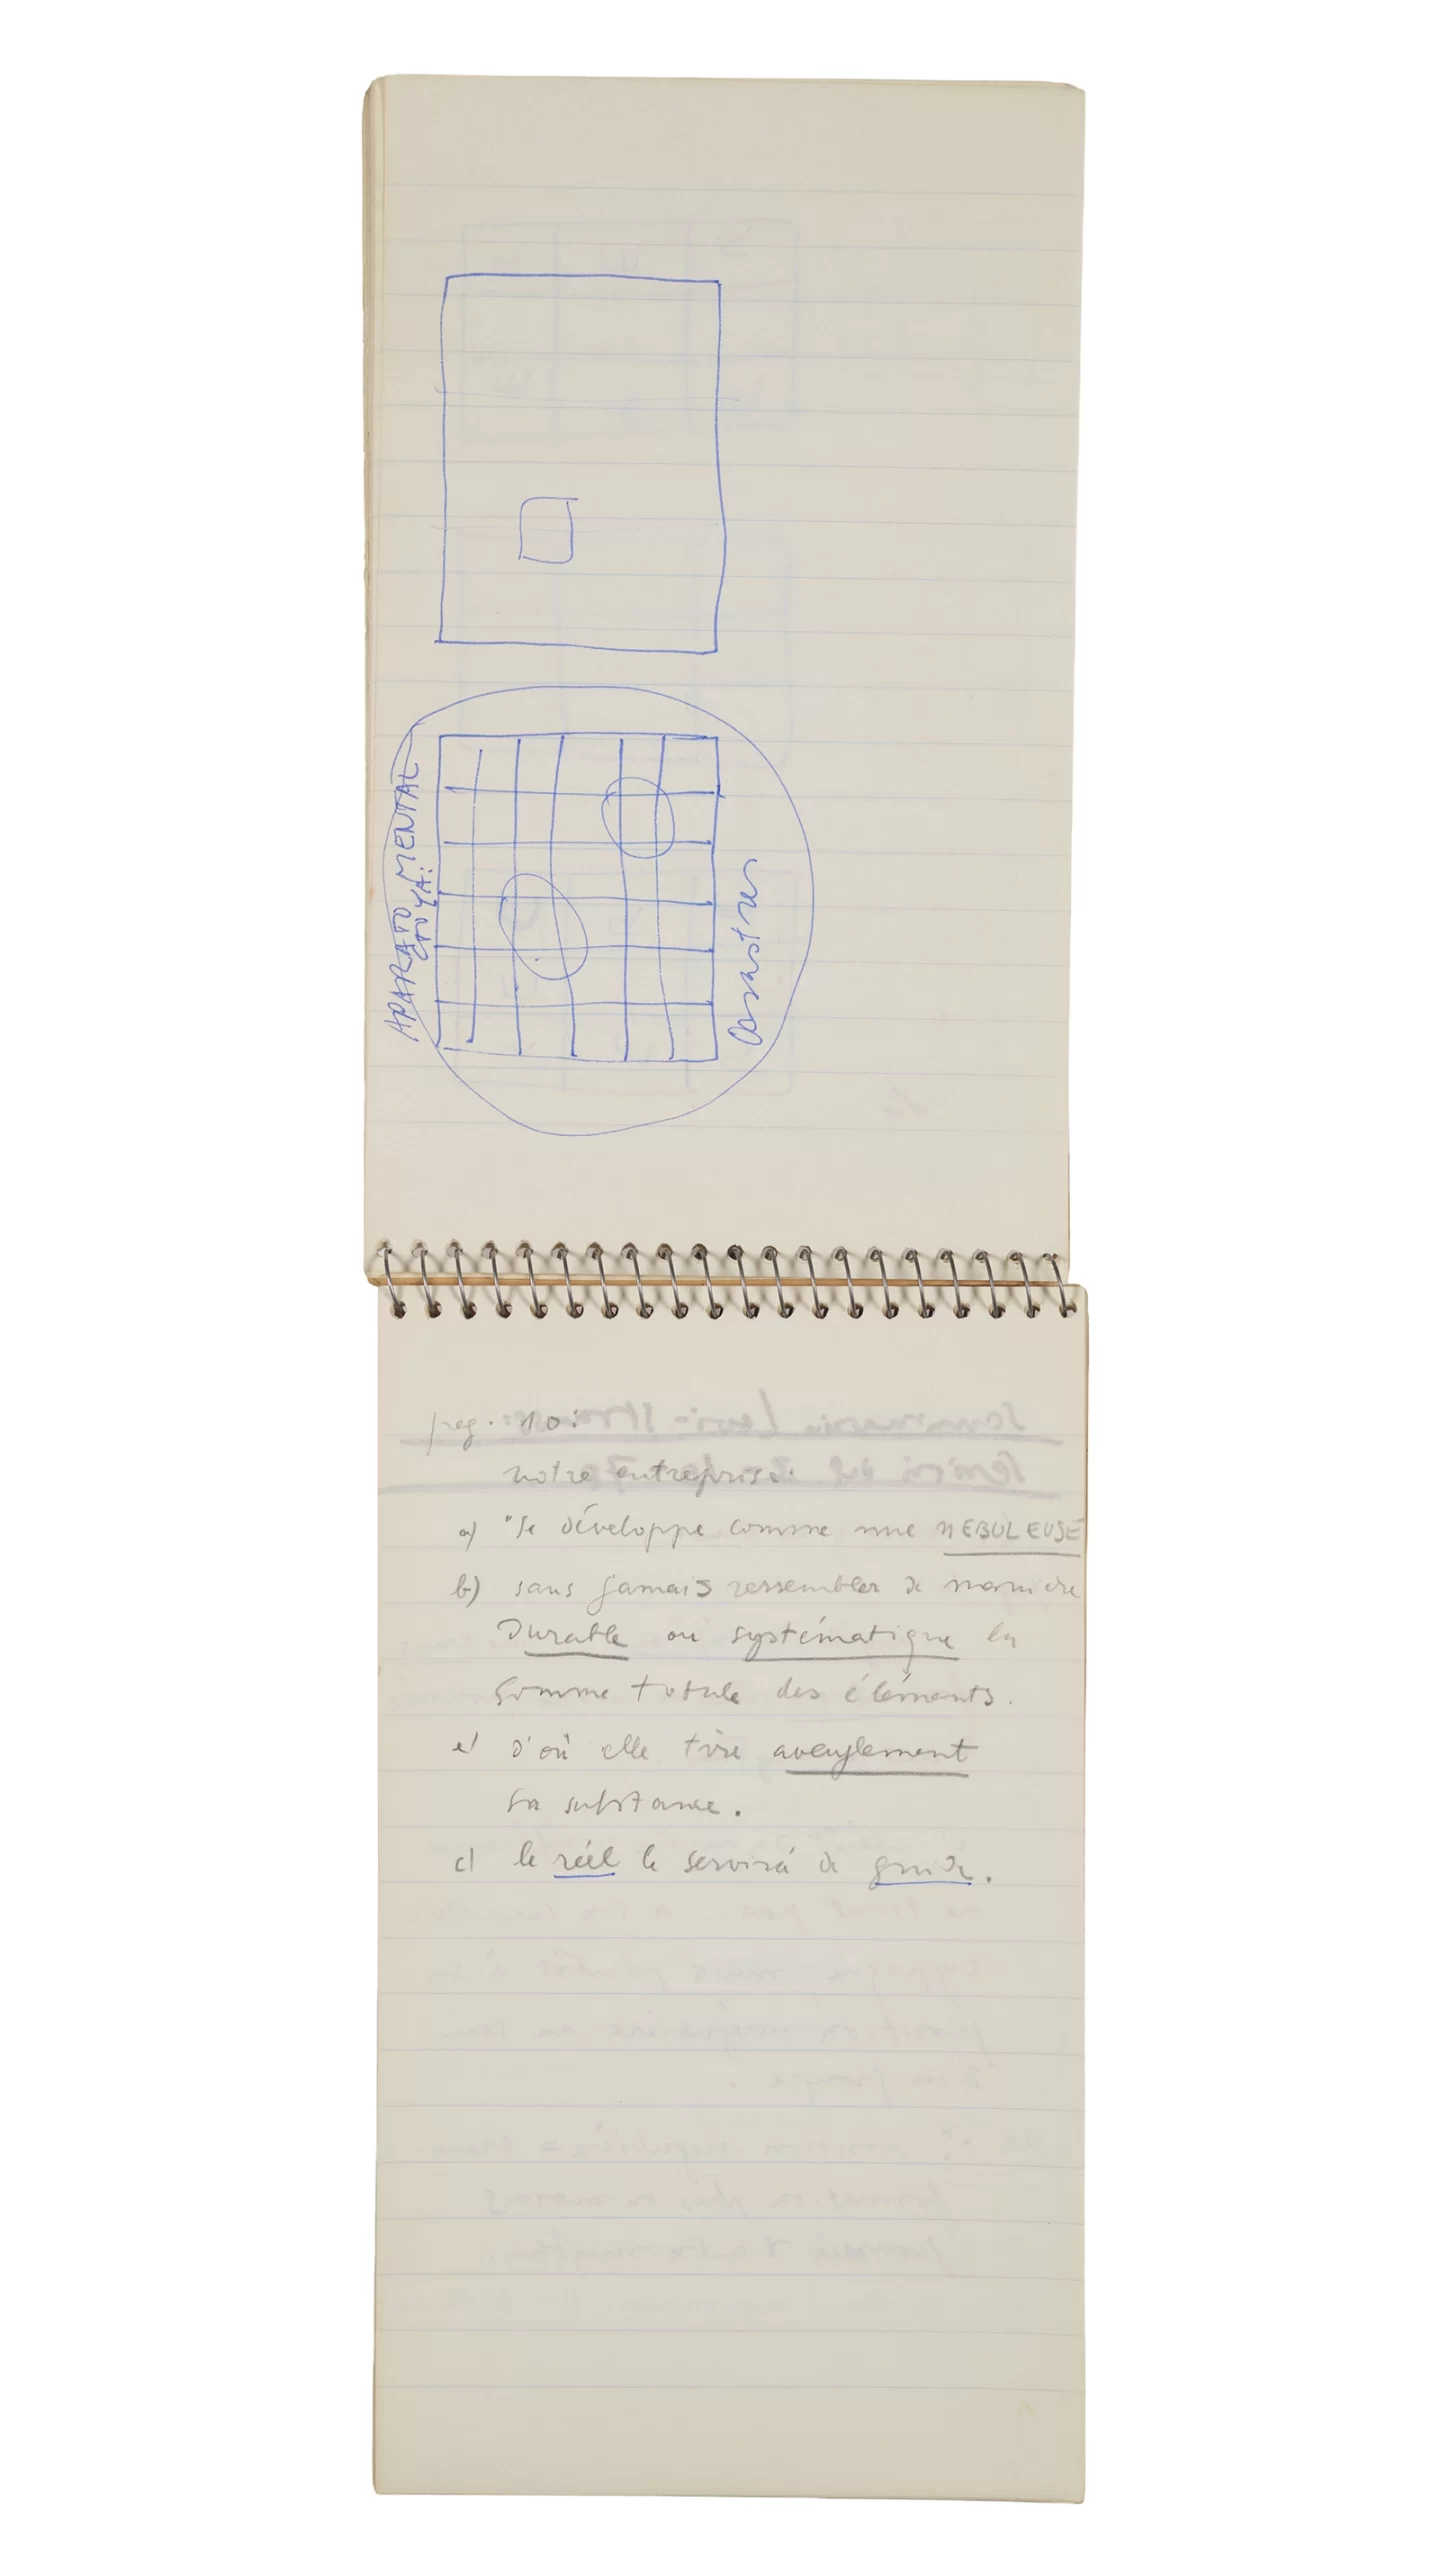 APARATO MENTAL
desastres
pag. 10:
notre entreprise:
a) "Se développe comme une NEBULEUSE
b) sans jamais ressembler de manière
Durable ou systématique la
somme totale des éléments.
d'où elle tire aveuglement
sa substance.
c) le réel le servirá de guide.